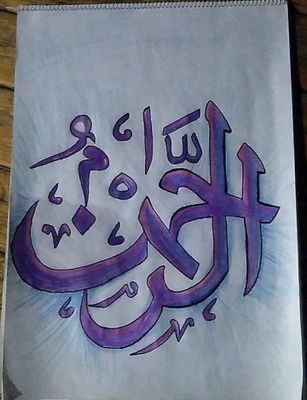 الرَّحْمٰنُ